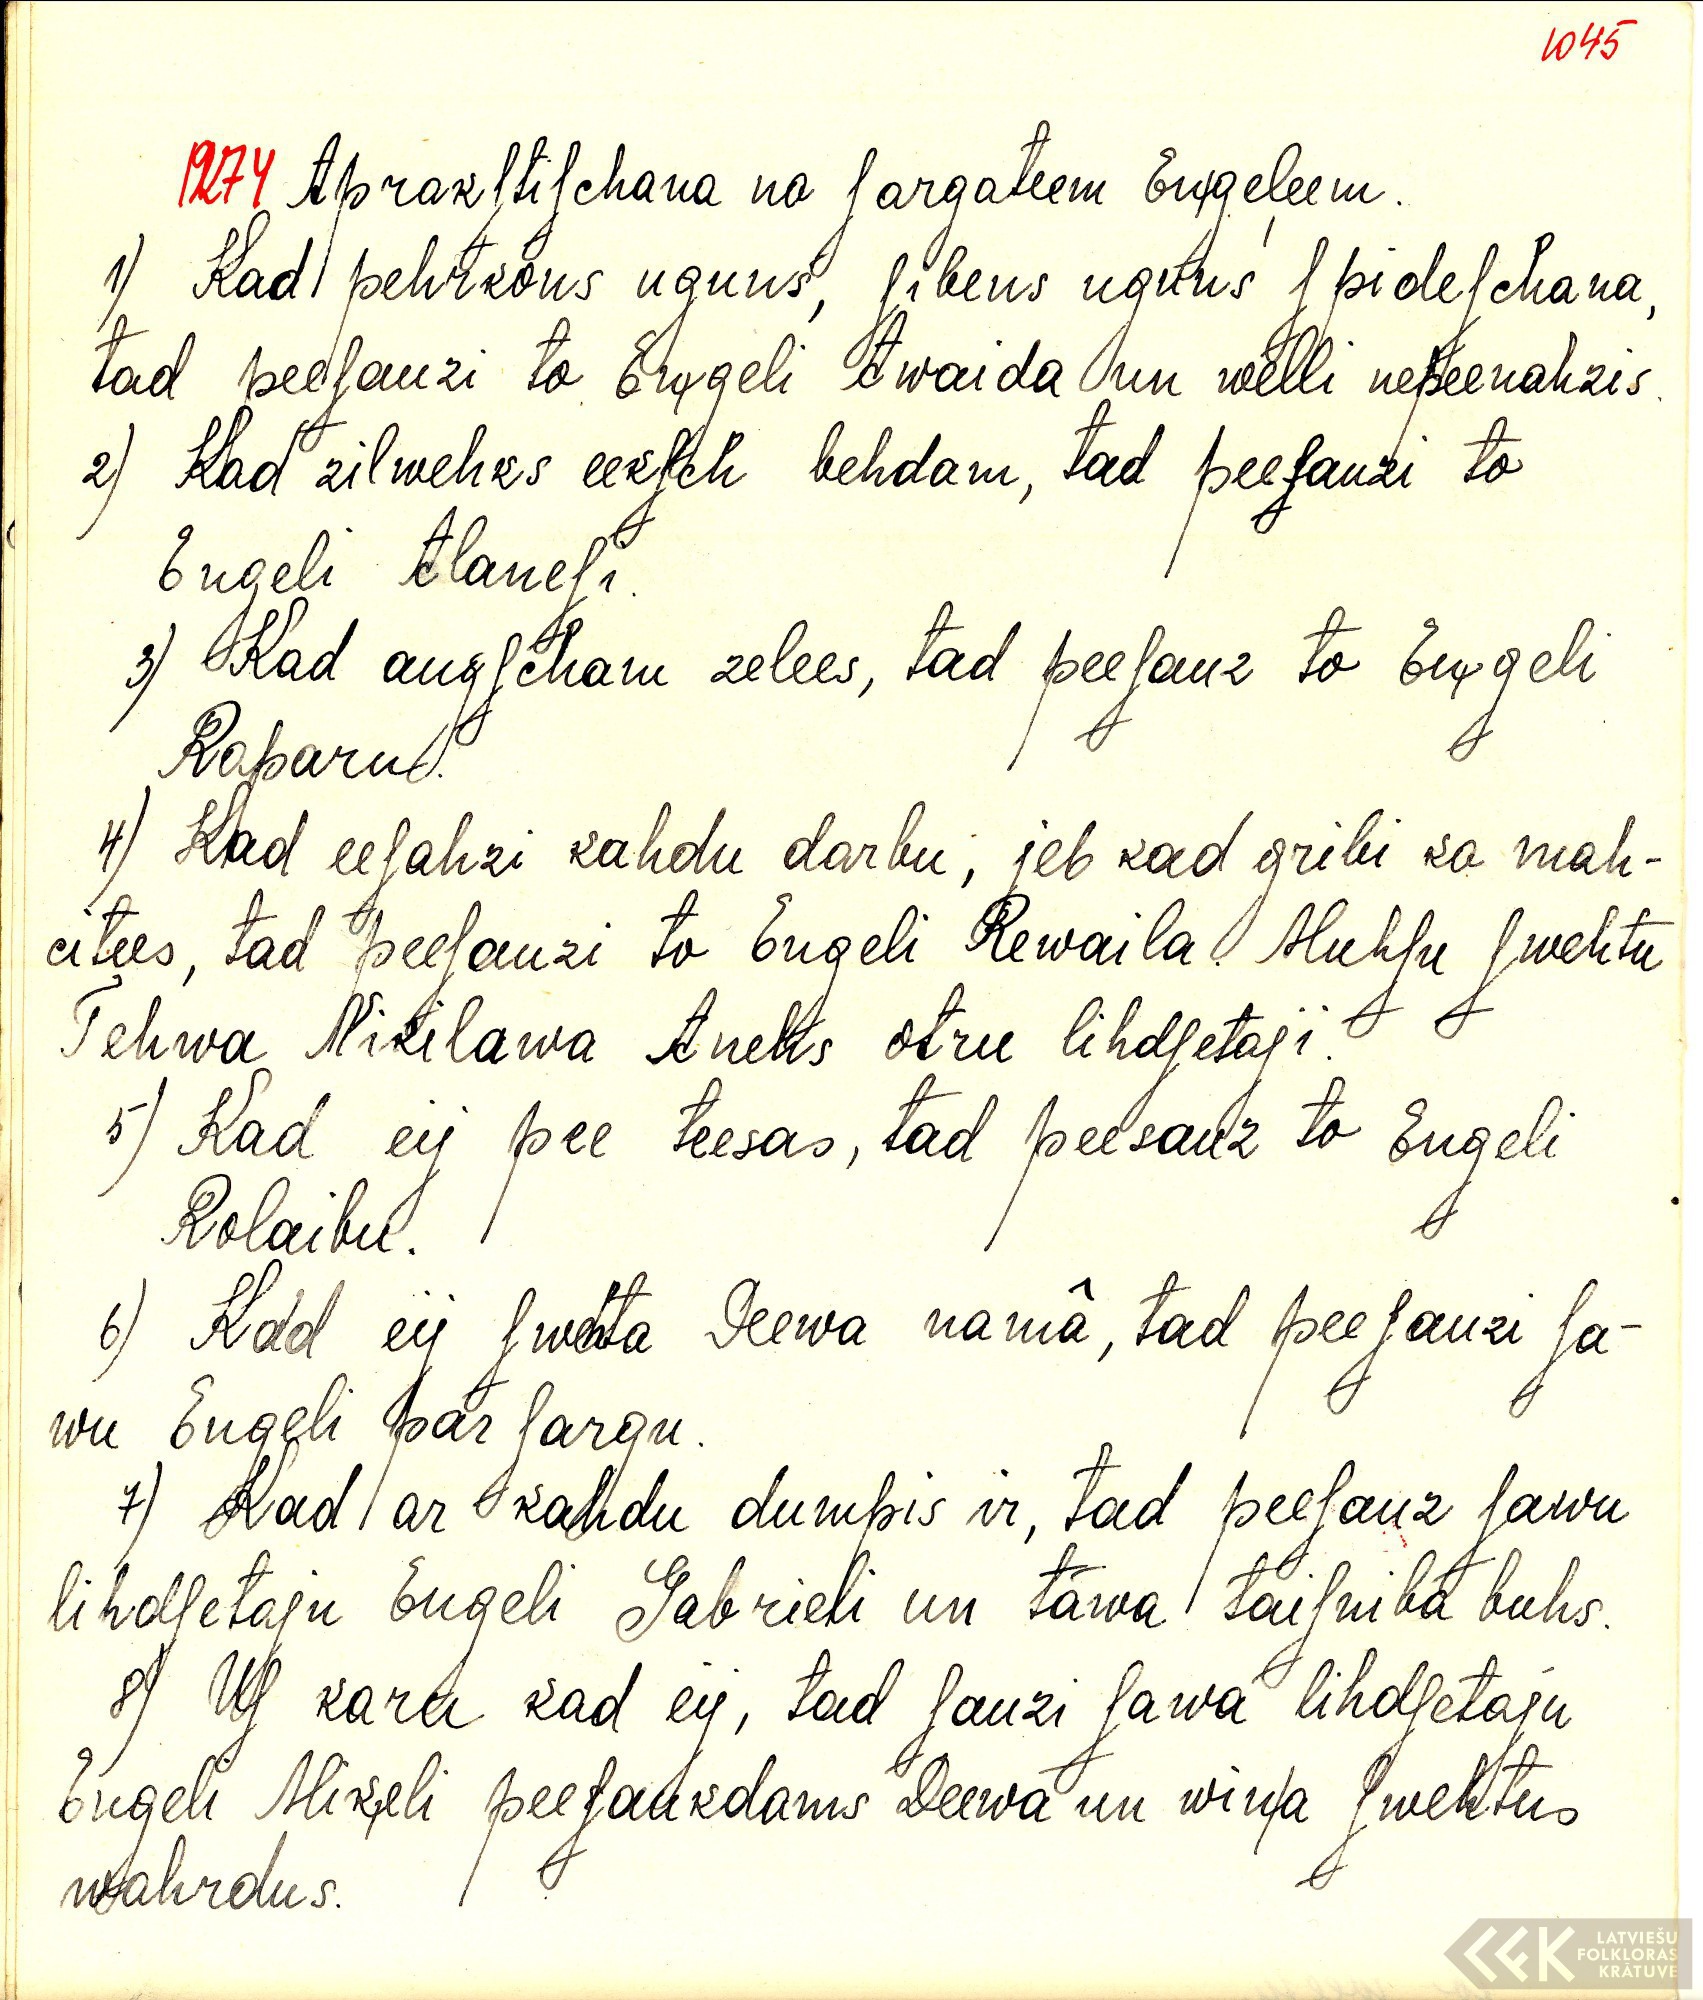 1045
19274 Aprakſtiſchana no ſargateem Enģeļeem.
1) Kad pehrkons uguns, ſibens uguns ſpideſchana,
tad peeſauzi to Enģeli Awaida un welli nepeenahzis.
2) Kad zilwehks eekſch behdam, tad peeſauzi to
Engeli Alaneſi.
3) Kad augſcham zelees, tad peeſauz to Enģeli
Raparu.
4) Kad eeſahzi kahdu darbu, jeb kad gribi ko mah-
citees, tad peeſauzi to Engeli Rewaila. Muhſu ſwehtu
Tehwa Nikilawa Anehs otru lihdſetaji.
5) Kad eij pee teesas, tad peesauz to Engeli
Rolaibu.
6) Kad eij ſwehta Deewa namâ, tad peeſauzi ſa-
wu Engeli par ſargu.
7) Kad ar kahdu dumpis ir, tad peeſauz ſawu
lihdſetaju Engeli Gabrieli un tawa taiſniba buhs.
8) Uſ kara kad eij, tad ſauzi ſawa lihdſetaju
Engeli Miķeli peeſaukdams Deewa un wiņa ſwehtus
wahrdus.
LATVIEŠU
FOLKLORAS
KRĀTUVE